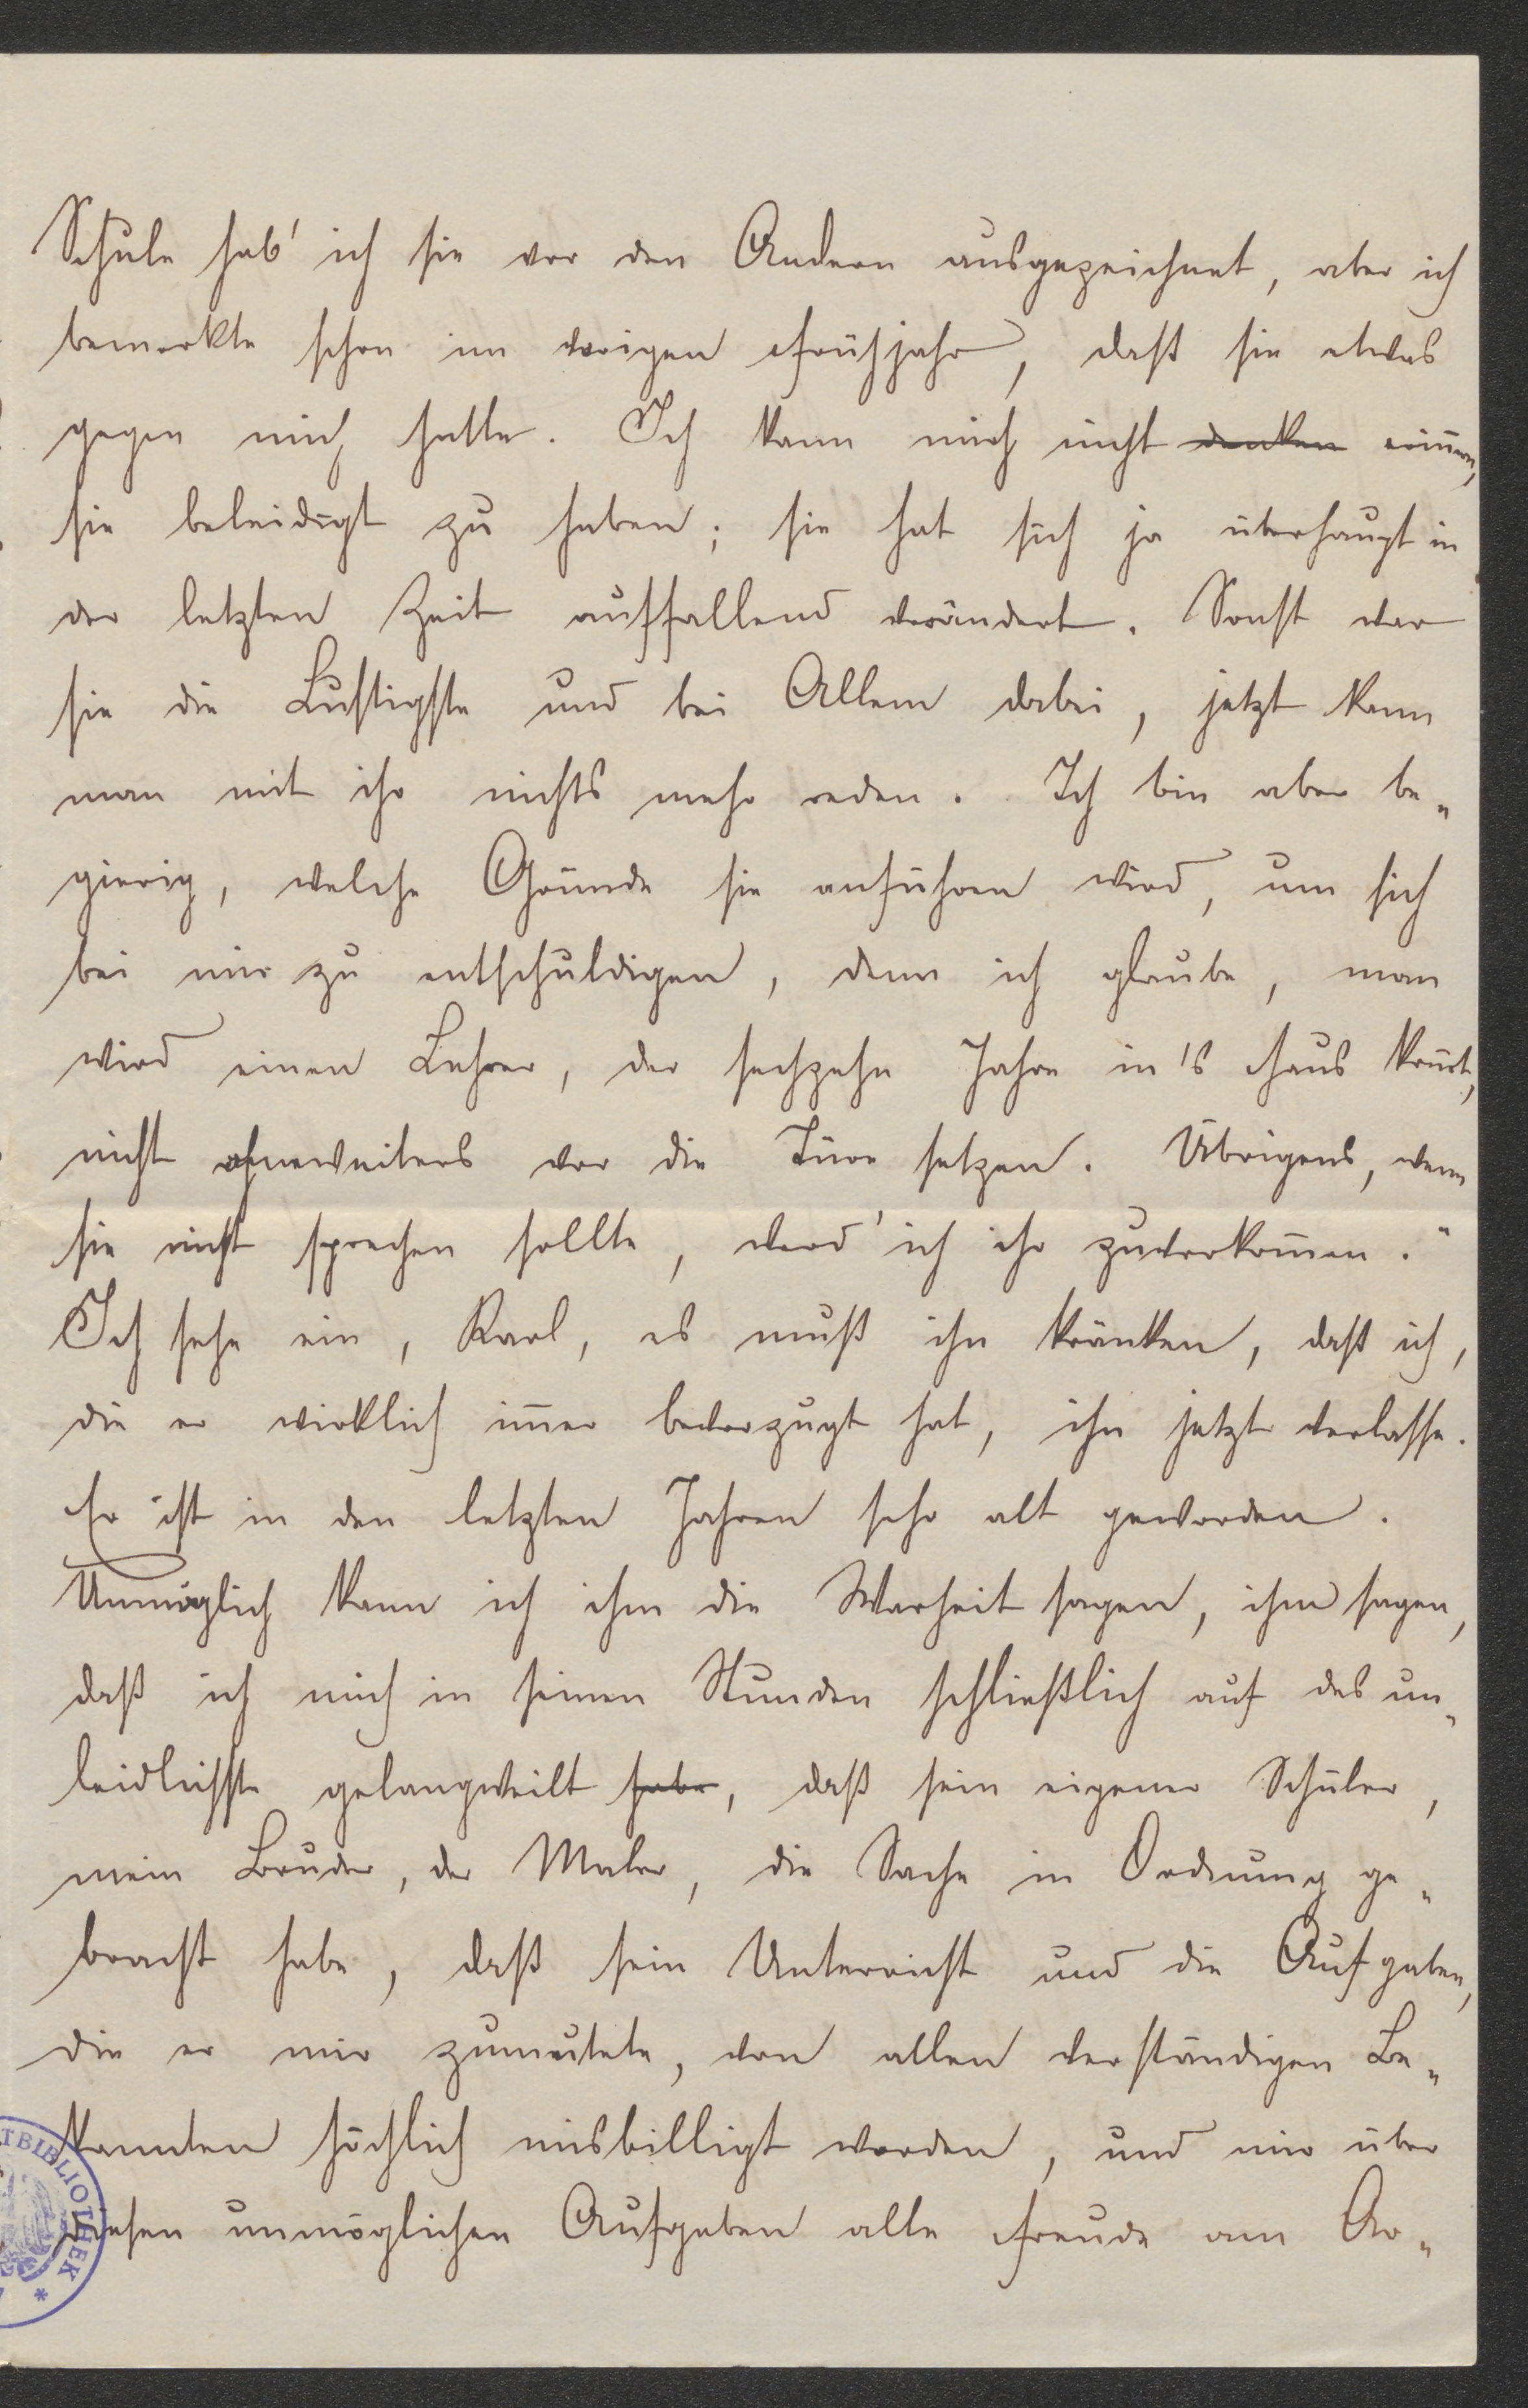 Schule hab' ich sie vor den Andern ausgezeichnet, aber ich
bemerkte schon im vorigen Frühjahr, daß sie etwas
gegen mich hatte. Ich kann mich nicht denken erinnern,
sie beleidigt zu haben; sie hat sich ja überhaupt in
der letzten Zeit auffallend verändert. Sonst war
sie die Lustigste und bei Allem dabei, jetzt kann
man mit ihr nichts mehr reden. Ich bin aber be-
gierig, welche Gründe sie anführen wird, um sich
bei mir zu entschuldigen, denn ich glaube, man
wird einen Lehrer, der sechzehn Jahre in's Haus kom̄t,
nicht ohneweiters vor die Türe setzen. Übrigens, wenn
sie nicht sprechen sollte, werd' ich ihr zuvorkom̄en."
Ich sehe ein, Karl, es muß ihn kränken, daß ich,
die er wirklich im̄er bevorzugt hat, ihn jetzt verlasse.
Er ist in den letzten Jahren sehr alt geworden.
Unmöglich kann ich ihm die Warheit sagen, ihm sagen,
daß ich mich in seinen Stunden schließlich auf das un-
leidlichste gelangweilt habe, daß sein eigener Schüler,
mein Bruder, der Maler, die Sache in Ordnung ge-
bracht habe, daß sein Unterricht und die Aufgaben,
die er mir zumutete, von allen verständigen Be-
kannten höchlich misbilligt worden, und mir über
diesen unmöglichen Aufgaben alle Freude am Ar-
TBIBLIOTHEK *